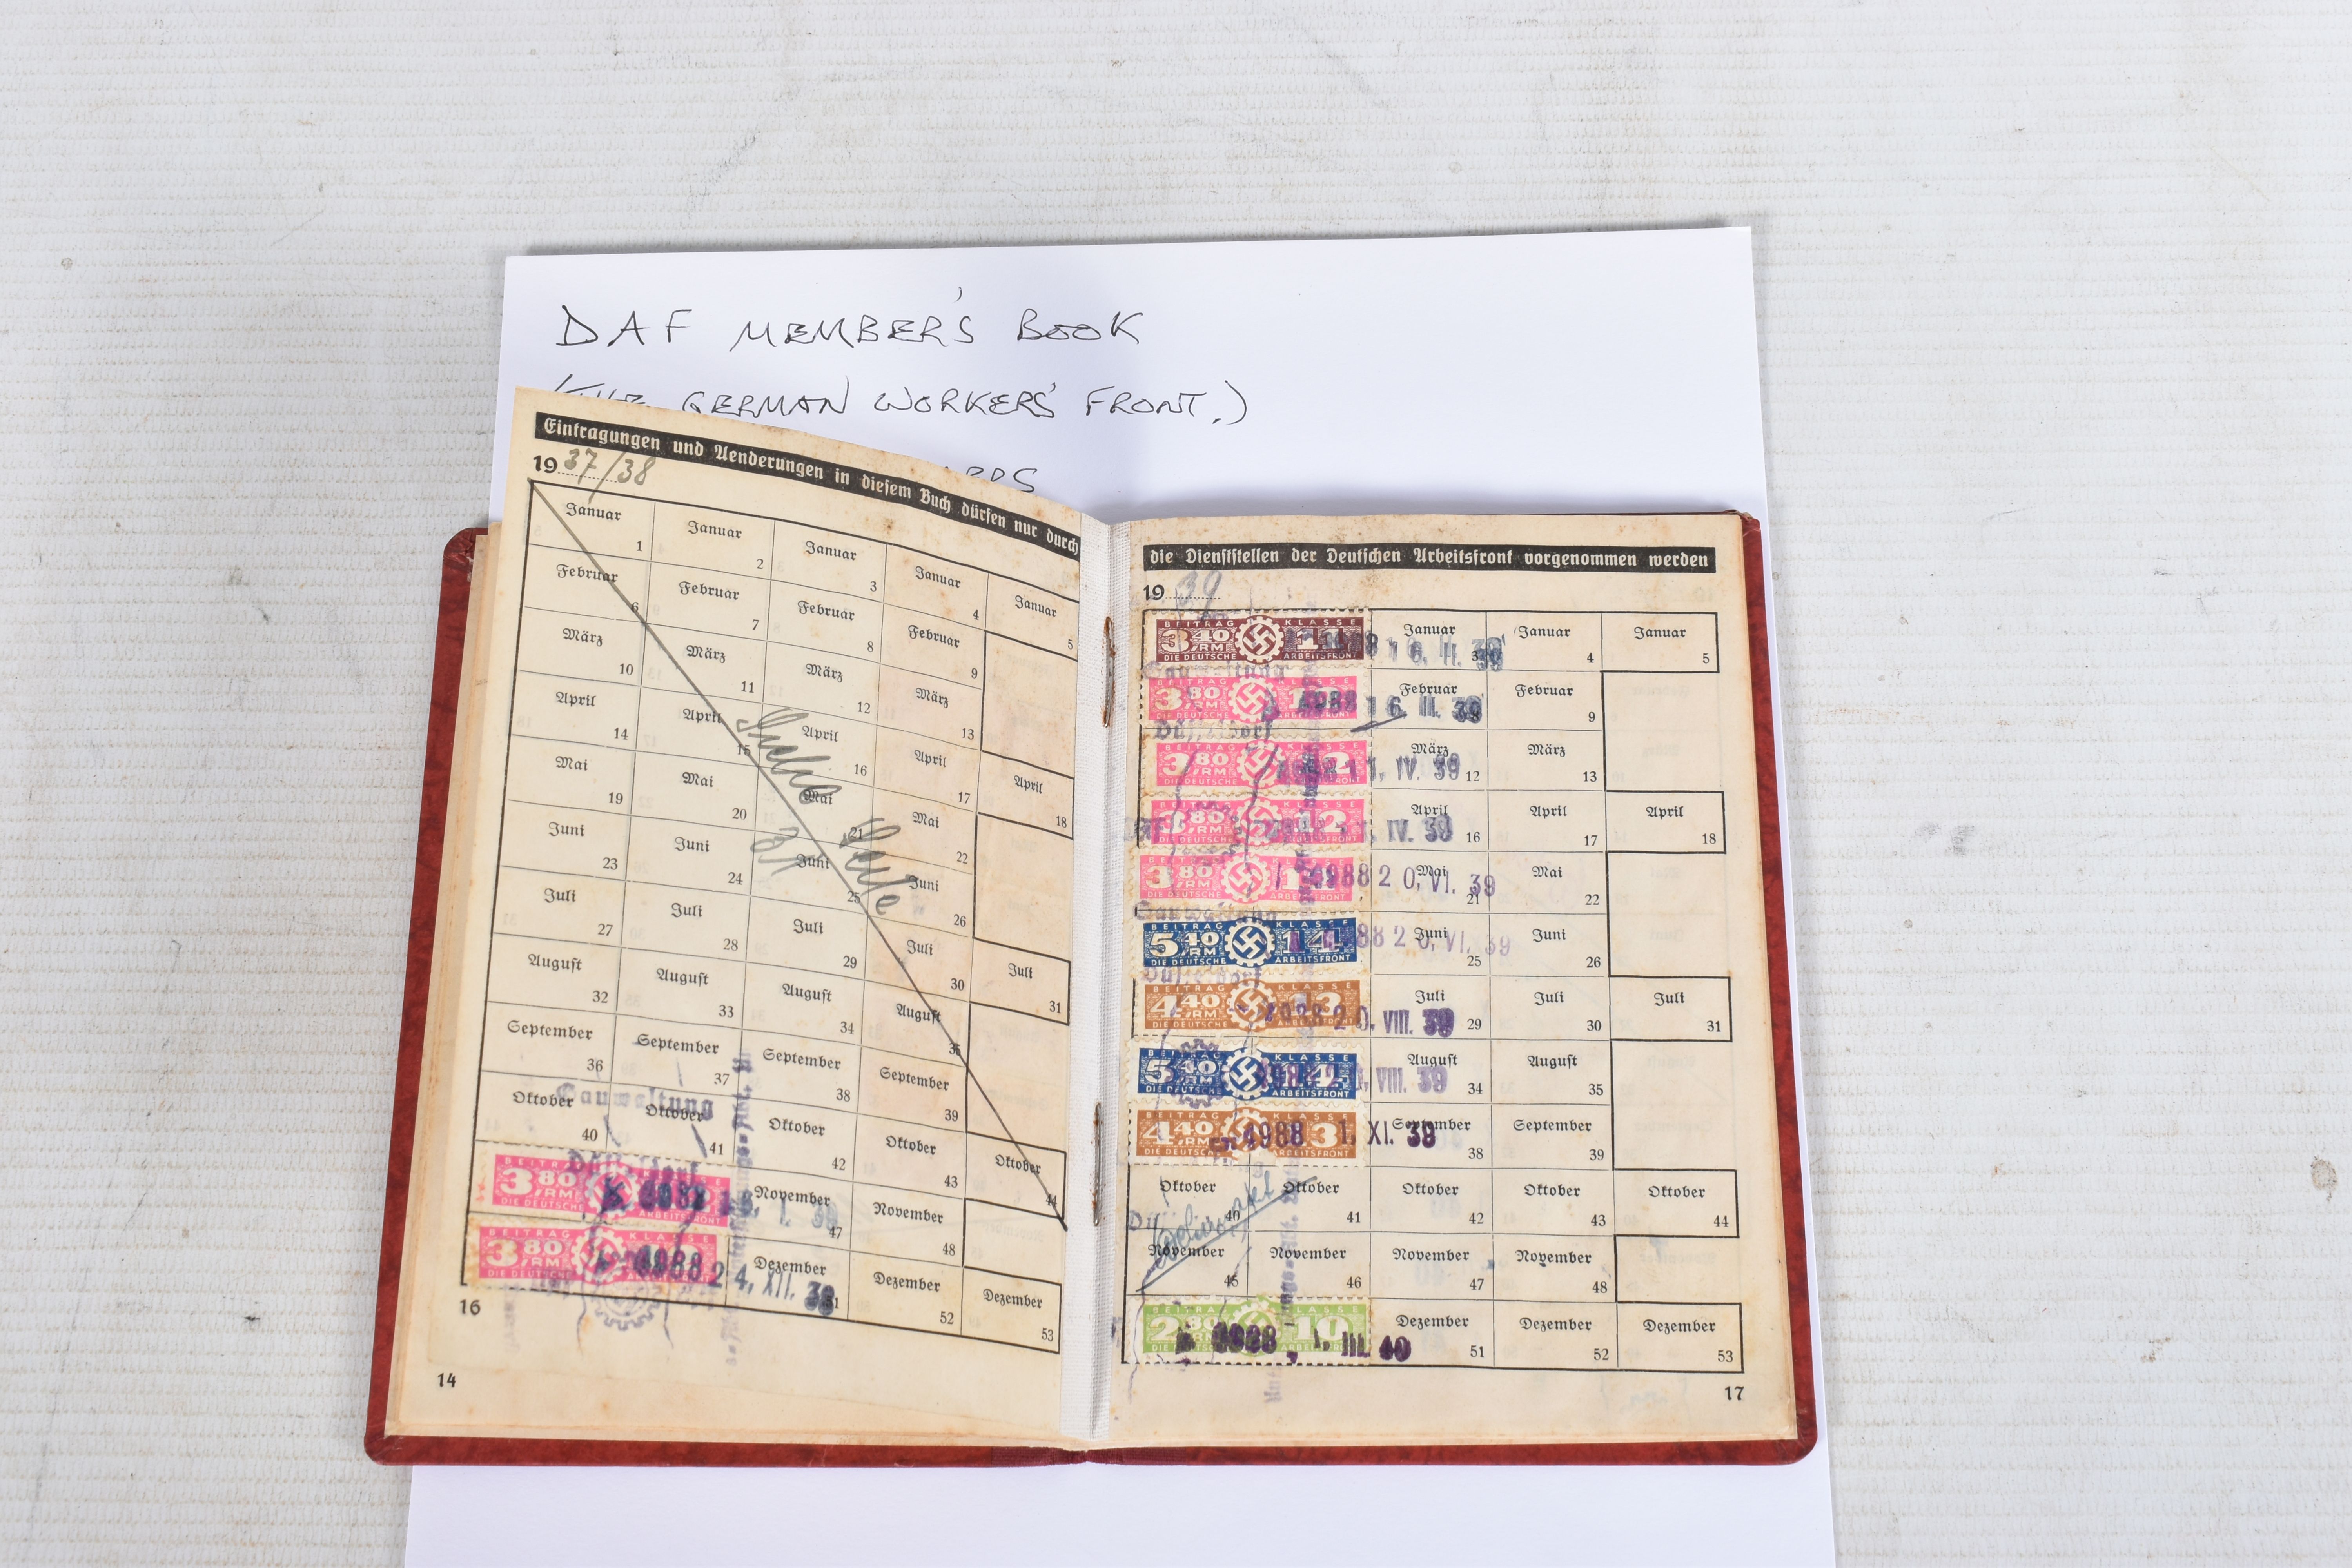 DAF MEMBER'S BOOK
(THE GERMAN WORKERS' FRONT.)
Eintragungen und Aenderungen in diesem Buch dürfen nur durch
19 37/38
Januar 1 Januar 2 Januar 3 Januar 4 Januar 5
Februar 6 Februar 7 Februar 8 Februar 9
März 10 März 11 März 12 März 13
April 14 April 15 April 16 April 17 April 18
Mai 19 Mai 20 Mai 21 Mai 22
Juni 23 Juni 24 Juni 25 Juni 26
Juli 27 Juli 28 Juli 29 Juli 30 Juli 31
August 32 August 33 August 34 August 35
September 36 September 37 September 38 September 39
Oktober 40 Oktober 41 Oktober 42 Oktober 43 Oktober 44
Siehe Seite 31
Gauwaltung
Düsseldorf
BEITRAG
3 80 RM
DIE DEUTSCHE ARBEITSFRONT
November 47 November 48
BEITRAG KLASSE
3 80 RM
DIE DEUTSCHE
4988 24. XII. 38
Dezember 51 Dezember 52 Dezember 53
16
14
die Dienststellen der Deutschen Arbeitsfront vorgenommen werden
19 39
BEITRAG KLASSE
3 40 RM 11
DIE DEUTSCHE ARBEITSFRONT
16. II. 39
Januar Januar 4 Januar 5
Gauwaltung
3 80 RM 12
DIE DEUTSCHE ARBEITSFRONT
4988 16. II. 39
Februar Februar 9
Düsseldorf
3 80 RM 12
DIE DEUTSCHE ARBEITSFRONT
IV. 39
März 12 März 13
3 80 RM 12
DIE DEUTSCHE ARBEITSFRONT
IV. 39
April 16 April 17 April 18
3 80 RM
DIE DEUTSCHE ARBEITSFRONT
4988 20. VI. 39
Mai 21 Mai 22
Gauwaltung
KLASSE
5 40 RM 14
DIE DEUTSCHE ARBEITSFRONT
4988 20. VI. 39
Juni 25 Juni 26
Düsseldorf
4 40 RM 13
DIE DEUTSCHE ARBEITSFRONT
4988 20. VIII. 39
Juli 29 Juli 30 Juli 31
BEITRAG KLASSE
5 40 RM 14
DIE DEUTSCHE ARBEITSFRONT
VIII. 39
August 34 August 35
BEITRAG KLASSE
4 40 RM 13
DIE DEUTSCHE ARBEITSFRONT
4988 1. XI. 39
September 38 September 39
Oktober 40 Oktober 41 Oktober 42 Oktober 43 Oktober 44
November 45 November 46 November 47 November 48
BEITRAG KLASSE
2 30 RM 10
DIE DEUTSCHE ARBEITSFRONT
III. 40
Dezember 51 Dezember 52 Dezember 53
17